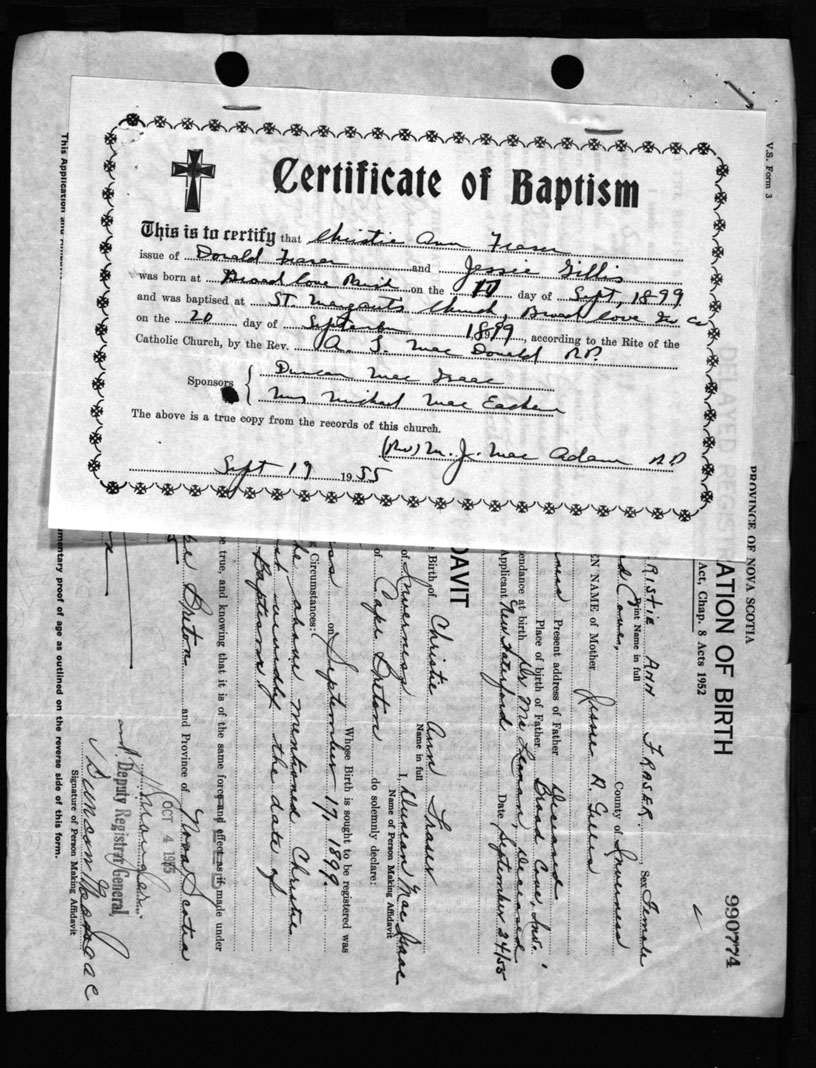 Certificate of Baptism
This is to certify that Christie Ann Fraser
issue of Donald Fraser and Jessie Gillis
was born at Broad Cove Parish on the 17 day of Sept, 1899
and was baptised at St. Margarets Church, Broad Cove Inv Co
on the 20 day of September 1899, according to the Rite of the
Catholic Church, by the Rev. A. L. Mac Donald P.P.
Sponsors Duncan Mac Isaac
Mrs Michael Mac Eachen
The above is a true copy from the records of this church.
(Rev) M. J. Mac Adam P.P.
Sept 19 1955
V.S. Form 3
PROVINCE OF NOVA SCOTIA
990774
DELAYED REGIS
ATION OF BIRTH
Act, Chap. 8 Acts 1952
RISTIE ANN FRASER. Sex Female
Print Name in full
d Cove, County of Inverness
EN NAME of Mother Jessie A. Gillis
ness Present address of Father Deceased
Place of birth of Father Broad Cove, Inv.
endance at birth. Dr Mc Lennan, Deceased
Applicant New Waterford Date September 24/55
DAVIT
Birth of Christie Ann Fraser
Name in full
of Inverness I, Duncan Mac Isaac
Name of Person Making Affidavit
of Cape Breton do solemnly declare:
Whose Birth is sought to be registered was
on September 17 1899
g Circumstances:
he above mentioned Christie
the date of
Baptism
be true, and knowing that it is of the same force and effect as if made under
pe Breton and Province of Nova Scotia
OCT 4 1955
and Deputy Registrar General
Duncan MacIsaac
Signature of Person Making Affidavit
This Application and Affidavit
umentary proof of age as outlined on the reverse side of this form.